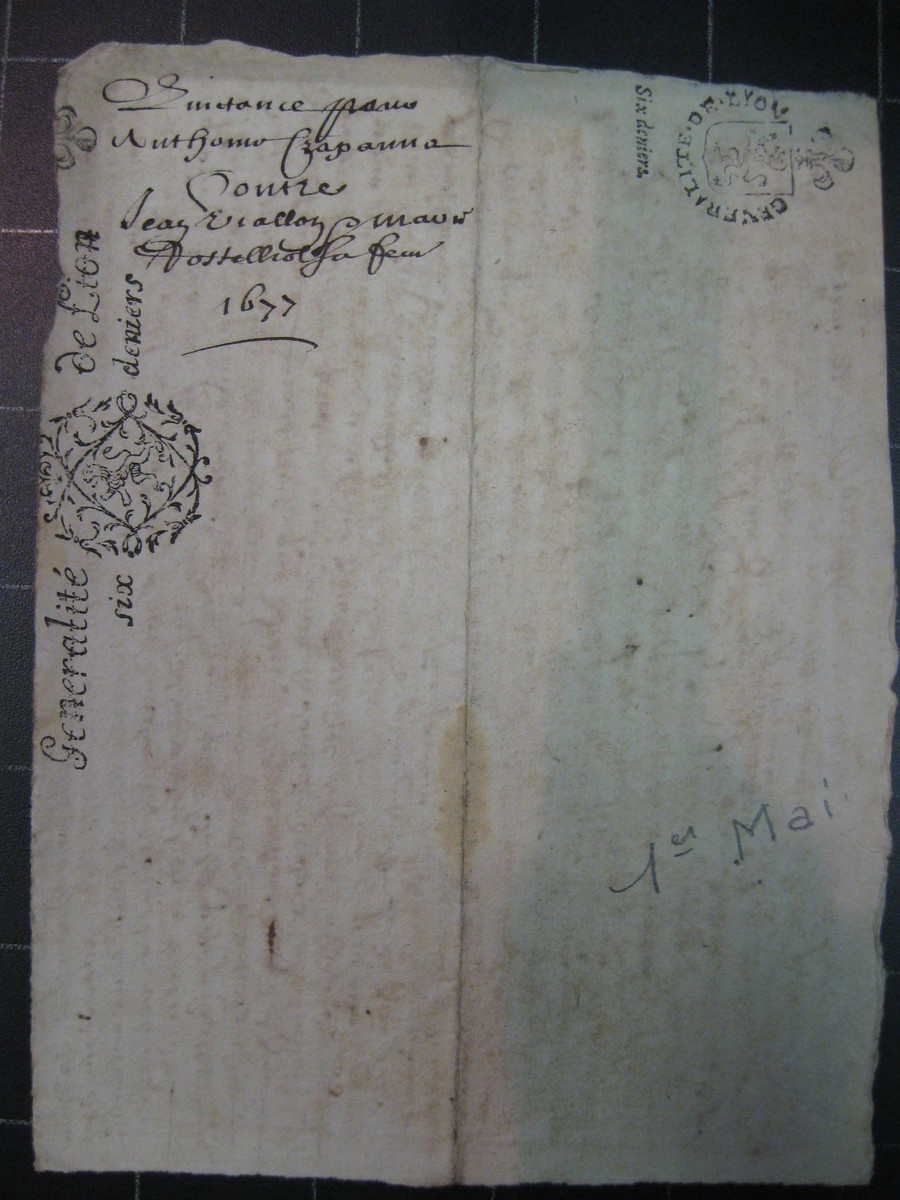 Quictance pour
Anthoine Chapanne
Contre
Jean Viallon & marie
sa fem
1677
Generalité de Lion
six deniers
Six deniers.
GENERALITE·DE·LYON
1er Mai